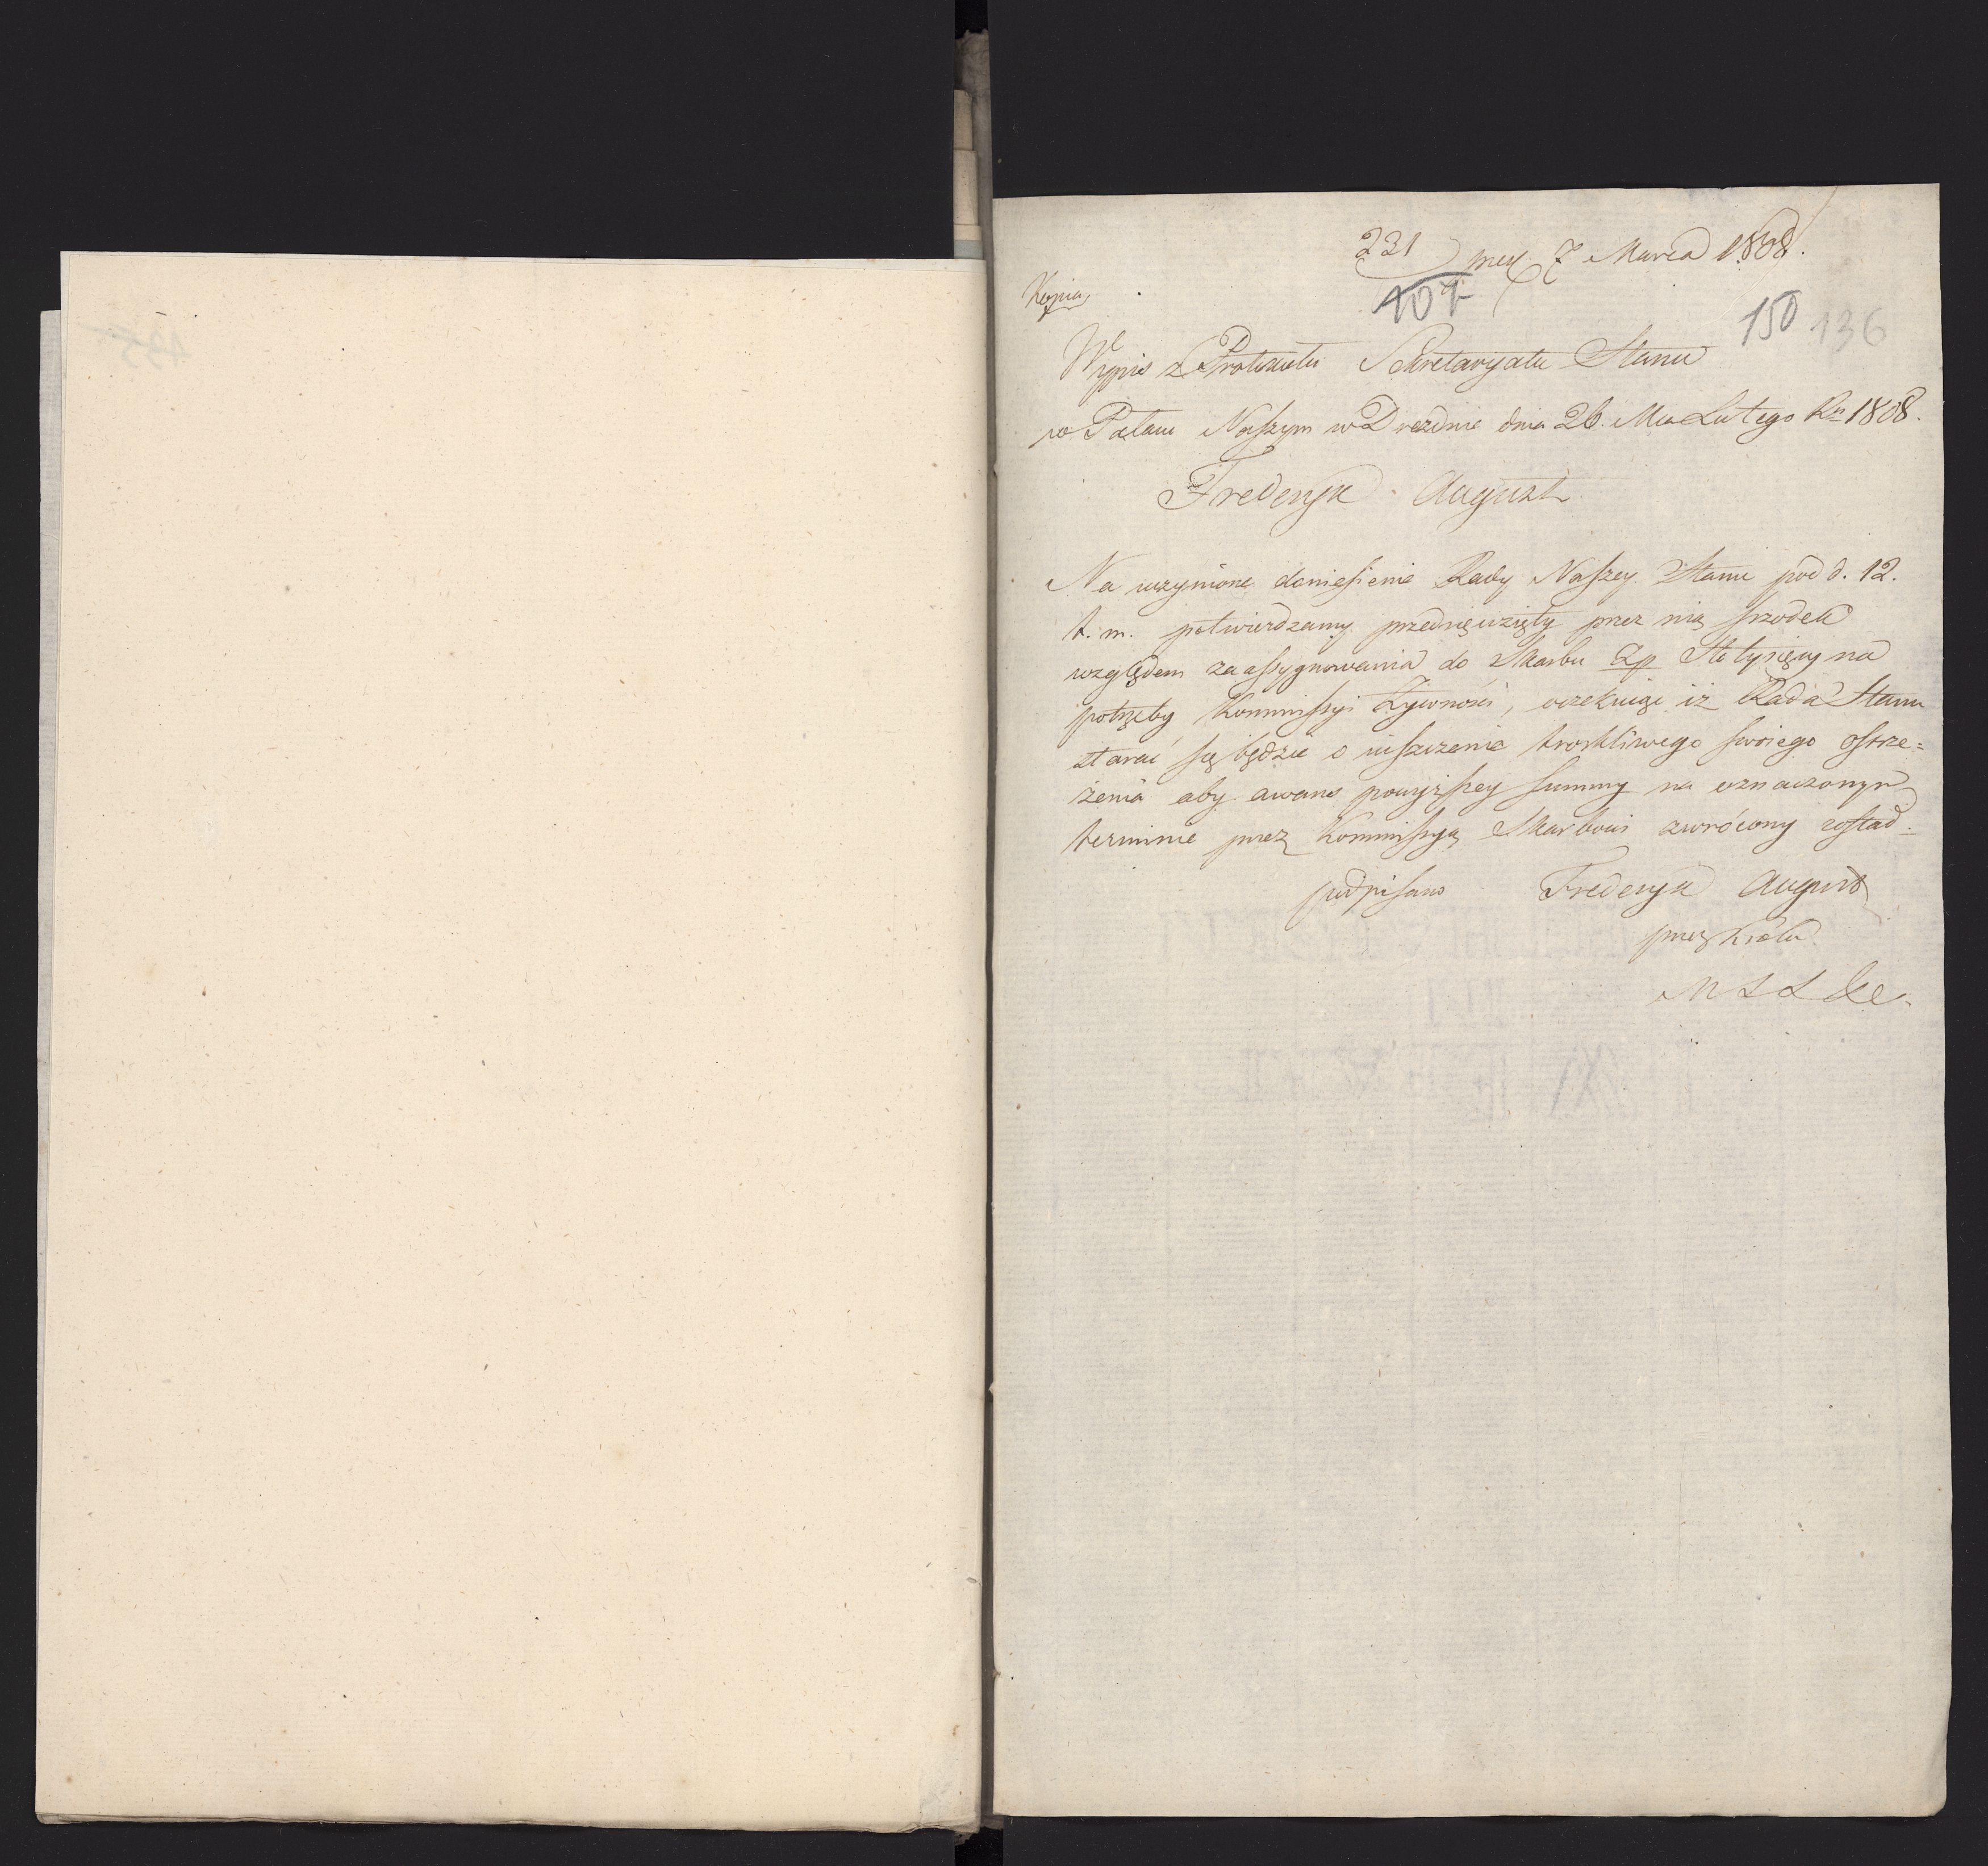 221 prez. 7 Marca 1808.
107
Kopia
150 136
Wypis z Protokułu Sekretaryatu Stanu
w Pałacu Naszym w Dreźnie dnia 26. Mca Lutego Ru 1808.
Frederyk August
Na uczynione doniesienie Rady Naszey Stanu pod d. 12.
t. m. potwierdzamy przedsięwzięty przez nią szrodek
względem zaassygnowania do Skarbu Zp Sto tysięcy na
potrzeby Kommissyi Żywności, oczekuiąc iż Rada Stanu
starać się będzie o uiszczenie troskliwego swoiego ostrze=
żenia aby awans powyższey summy na oznaczonym
terminie przez Kommissyą Skarbowi zwrócony został.
podpisano Frederyk August
przez Króla